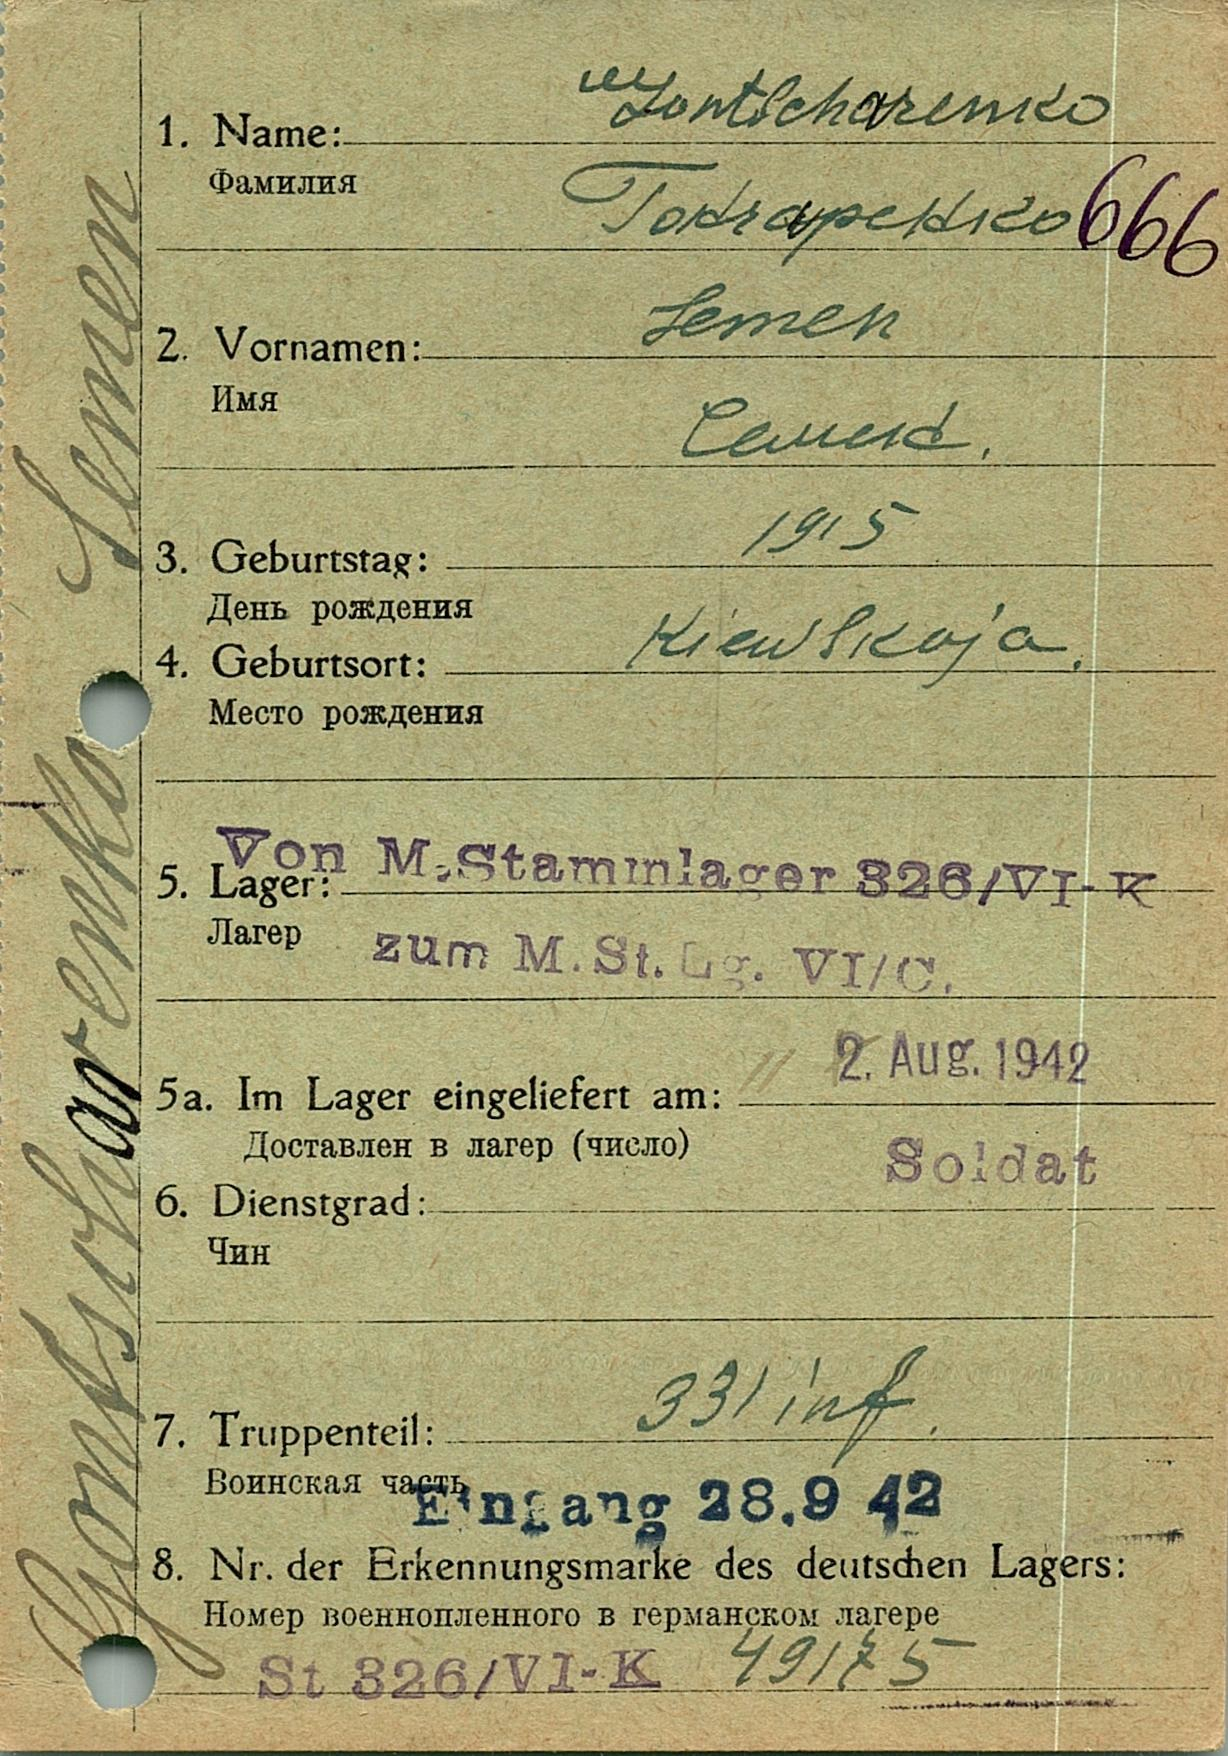 1. Name: Gontscharenko
Фамилия
Гончаренко 666
2. Vornamen: Semen
Имя
Семен.
3. Geburtstag: 1915
День рождения
4. Geburtsort: Kiewskaja.
Место рождения
Von M.Stammlager 326/VI-K
5. Lager:
Лагер
zum M.St.Lg. VI/C.
5a. Im Lager eingeliefert am: 2. Aug. 1942
Доставлен в лагер (число)
6. Dienstgrad: Soldat
Чин
7. Truppenteil: 331 inf.
Воинская часть
Eingang 28.9 42
8. Nr. der Erkennungsmarke des deutschen Lagers:
Номер военнопленного в германском лагере
St 326/VI-K 49175
Gontscharenko Semen